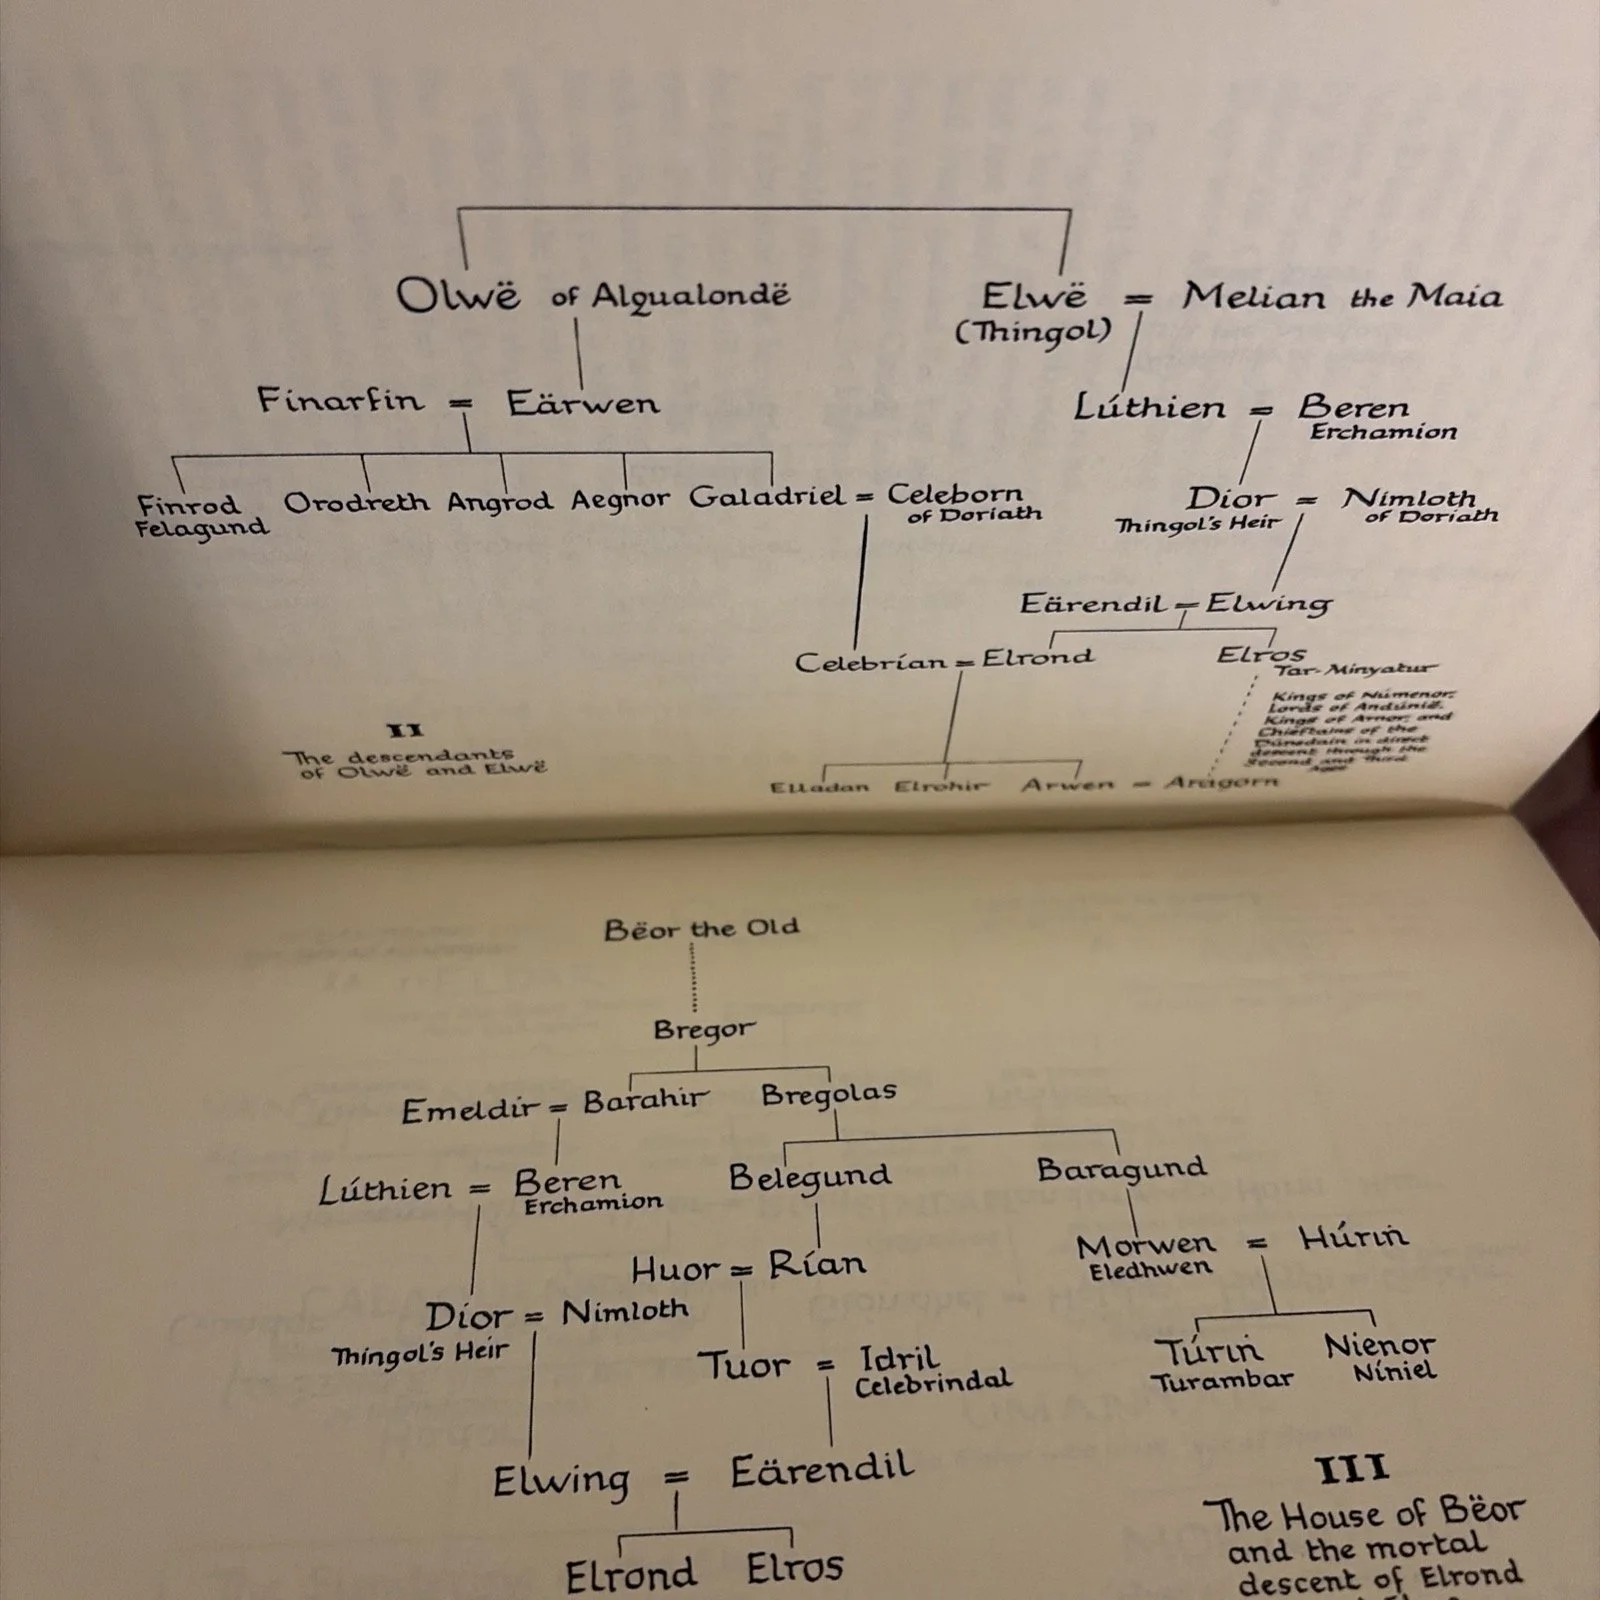 Olwë of Alqualondë
Elwë = Melian the Maia
(Thingol)
Finarfin = Eärwen
Lúthien = Beren
Erchamion
Finrod Orodreth Angrod Aegnor Galadriel = Celeborn
Felagund
of Doriath
Dior = Nimloth
Thingol's Heir
of Doriath
Eärendil = Elwing
Celebrían = Elrond
Elros
Tar-Minyatur
Kings of Númenor;
Lords of Andúnië;
Kings of Arnor; and
Chieftains of the
Dúnedain in direct
descent through the
Second and Third
Ages
II
The descendants
of Olwë and Elwë
Elladan Elrohir Arwen = Aragorn
Bëor the Old
Bregor
Emeldir = Barahir Bregolas
Lúthien = Beren
Erchamion
Belegund
Baragund
Huor = Rían
Morwen = Húrin
Eledhwen
Dior = Nimloth
Thingol's Heir
Tuor = Idril
Celebrindal
Túrin
Turambar
Nienor
Níniel
Elwing = Eärendil
Elrond Elros
III
The House of Bëor
and the mortal
descent of Elrond